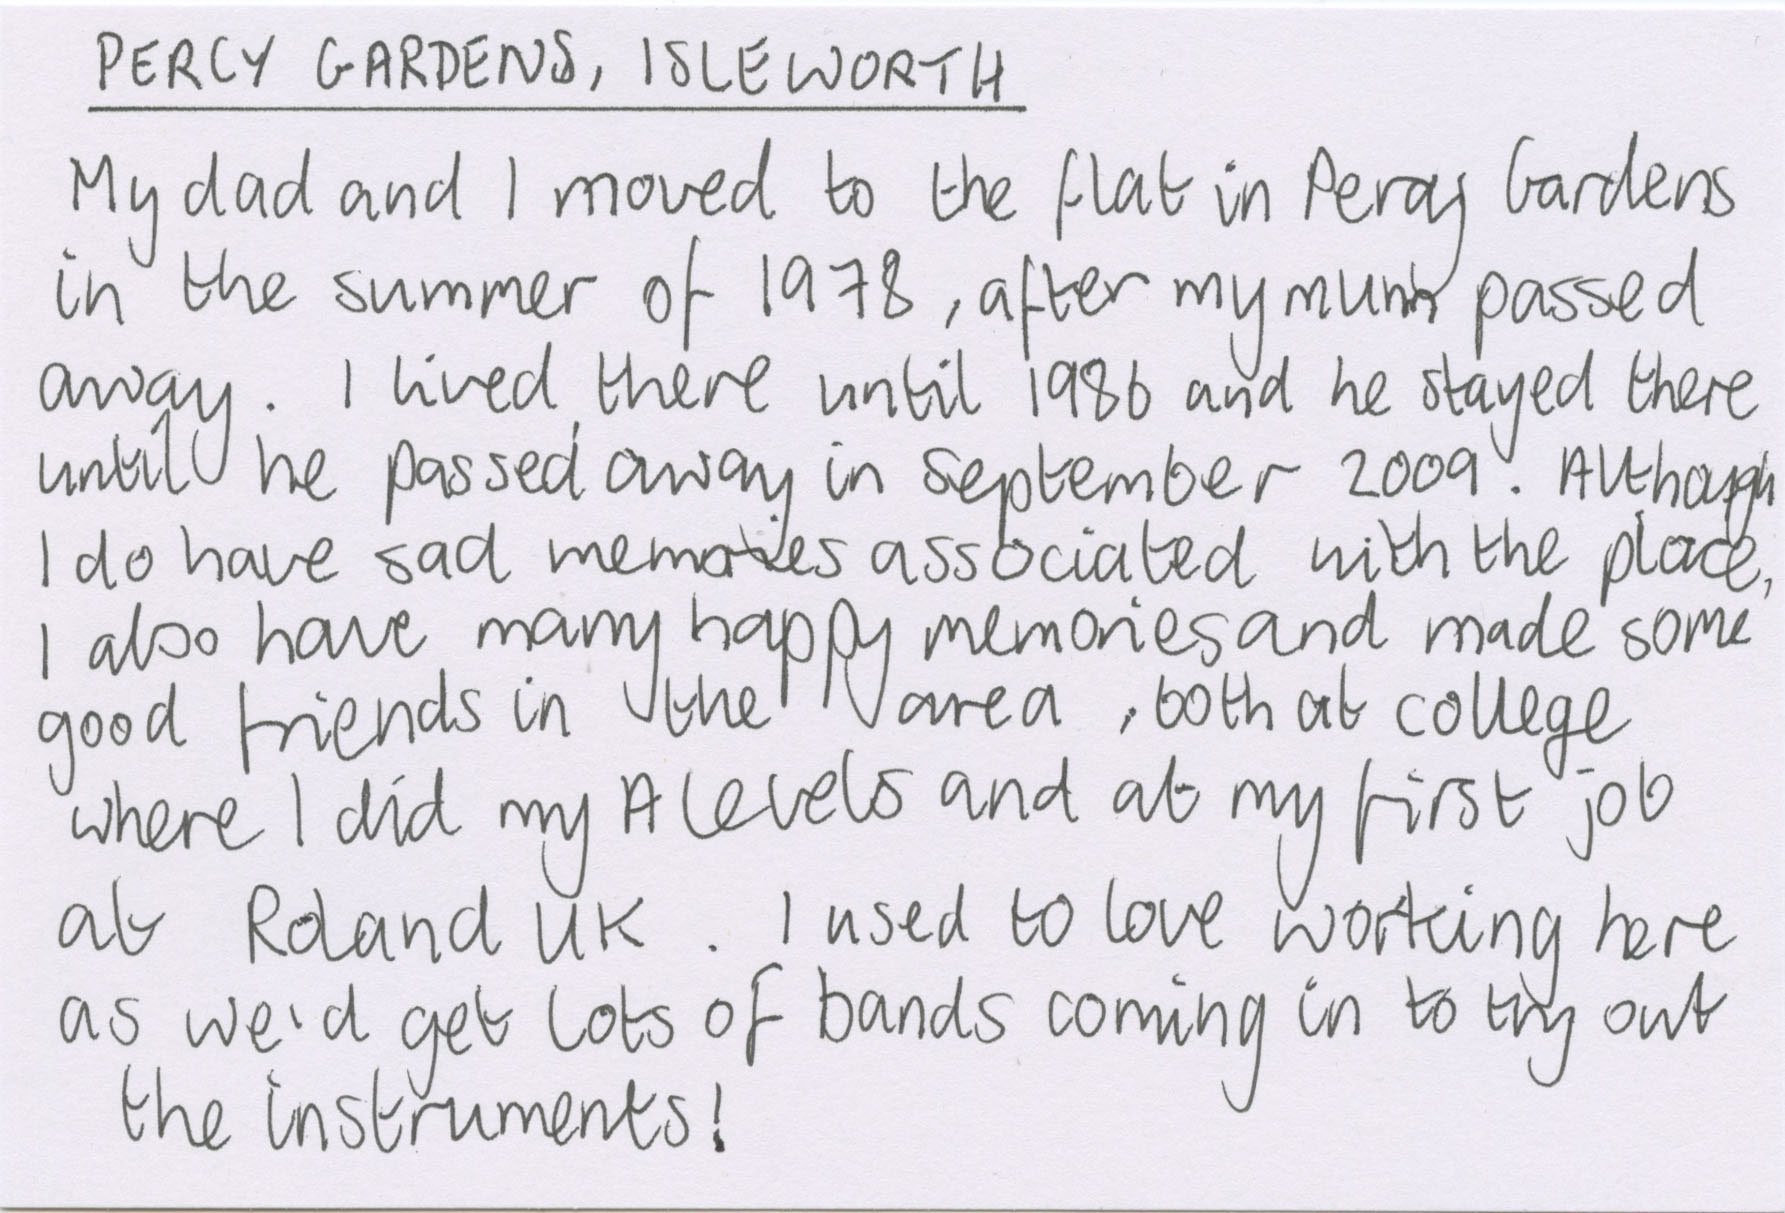 PERCY GARDENS, ISLEWORTH
My dad and I moved to the flat in Percy Gardens
in the summer of 1978, after my mum passed
away. I lived there until 1986 and he stayed there
until he passed away in September 2009. Although
I do have sad memories associated with the place,
I also have many happy memories and made some
good friends in the area, both at college
where I did my A levels and at my first job
at Roland UK. I used to love working here
as we'd get lots of bands coming in to try out
the instruments!